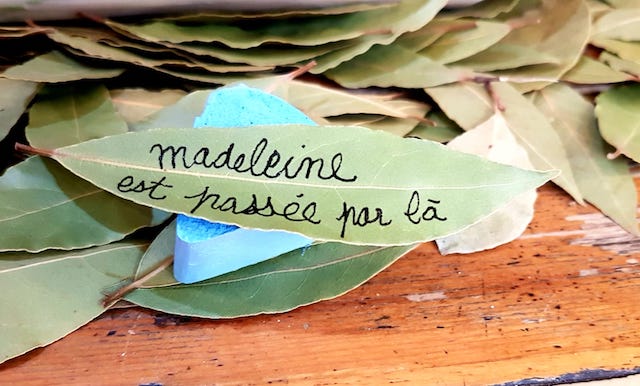 madeleine
est passée par là